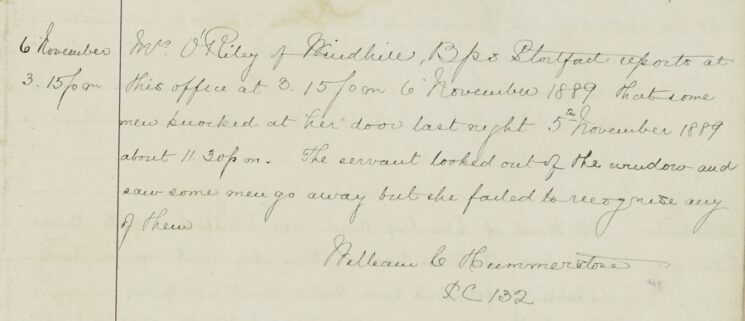 6 November
3.15 pm
Mrs O'Riley of Windhill, Bps Stortford reports at
this office at 3.15 pm 6 November 1889 that some
men knocked at her door last night 5th November 1889
about 11.30 pm. The servant looked out of the window and
saw some men go away but she failed to recognise any
of them
William C Hummerstone
PC 132